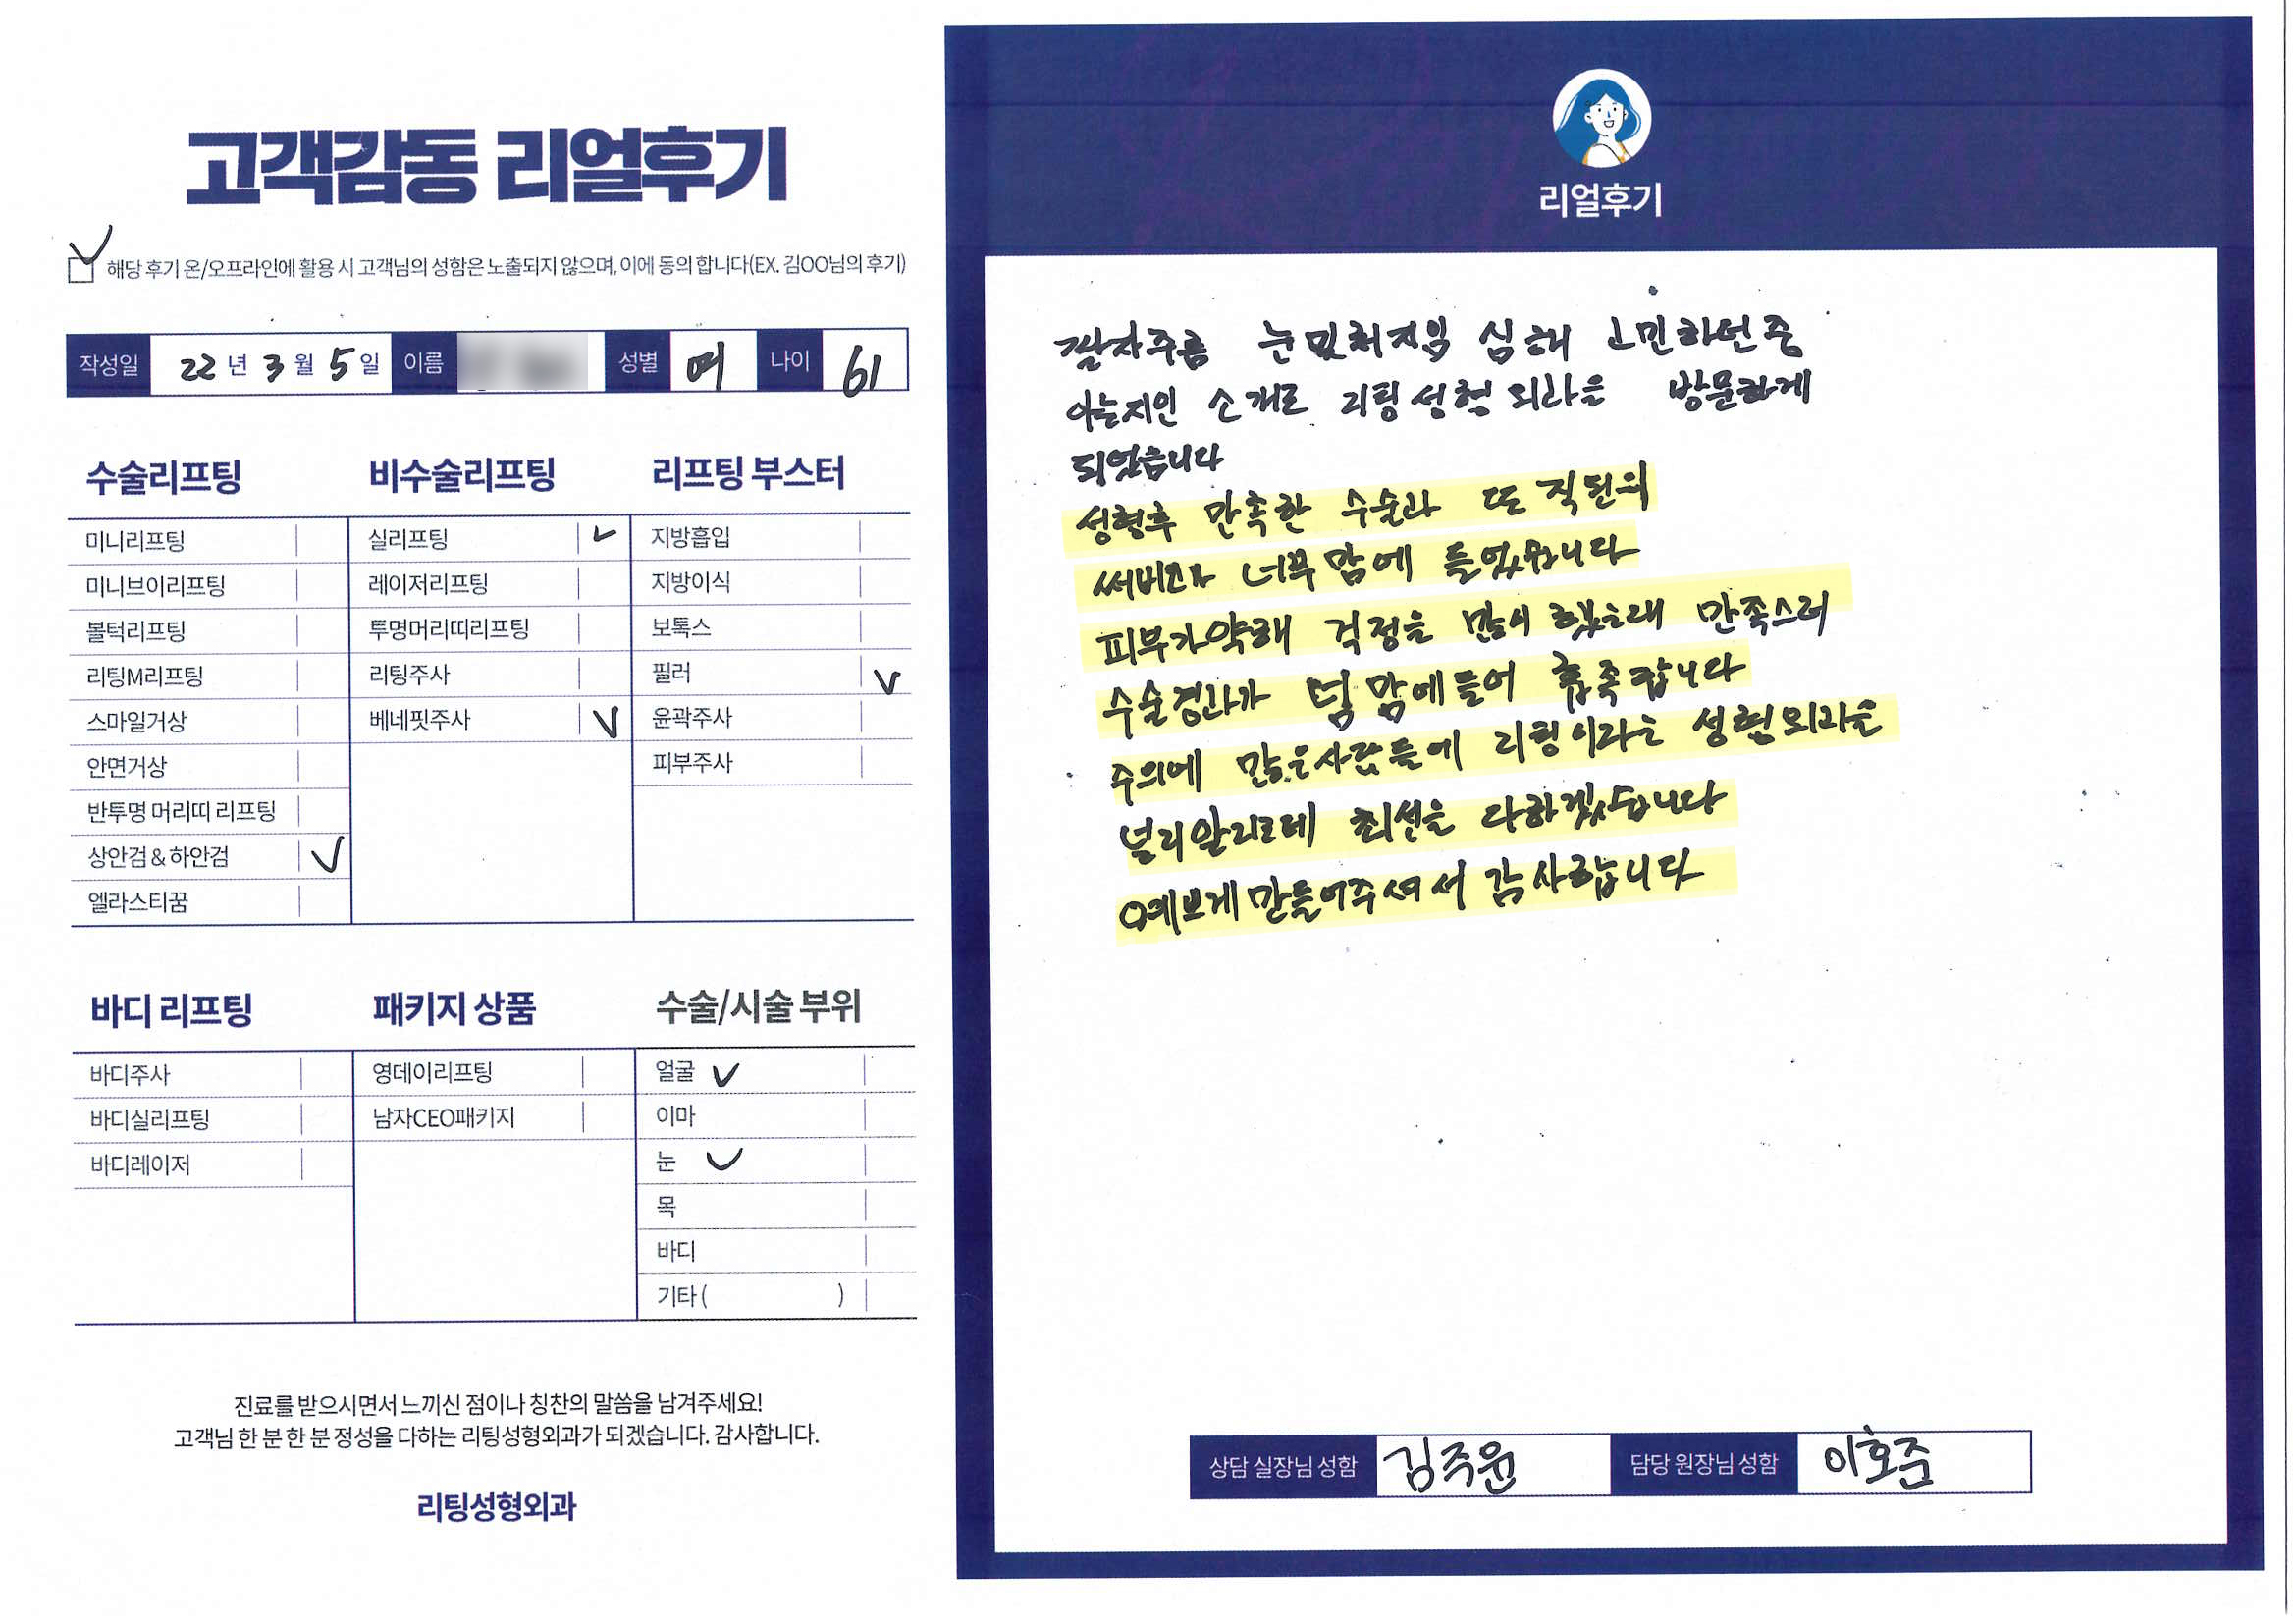 고객감동 리얼후기
해당 후기 온/오프라인에 활용 시 고객님의 성함은 노출되지 않으며, 이에 동의 합니다(EX. 김OO님의 후기)
작성일 22년 3월 5일 이름 성별 여 나이 61
수술리프팅
미니리프팅
미니브이리프팅
볼턱리프팅
리팅M리프팅
스마일거상
안면거상
반투명 머리띠 리프팅
상안검 & 하안검
엘라스티꿈
비수술리프팅
실리프팅
레이저리프팅
투명머리띠리프팅
리팅주사
베네핏주사
리프팅 부스터
지방흡입
지방이식
보톡스
필러
윤곽주사
피부주사
바디 리프팅
바디주사
바디실리프팅
바디레이저
패키지 상품
영데이리프팅
남자CEO패키지
수술/시술 부위
얼굴
이마
눈
목
바디
기타 ( )
진료를 받으시면서 느끼신 점이나 칭찬의 말씀을 남겨주세요!
고객님 한 분 한 분 정성을 다하는 리팅성형외과가 되겠습니다. 감사합니다.
리팅성형외과
리얼후기
팔자주름 눈밑처짐이 심해 고민하던중
아는지인 소개로 리팅성형외과을 방문하게
되었습니다
성형후 만족한 수술과 또 직원의
써비스가 너무맘에 들었습니다
피부가약해 걱정을 많이 했는데 만족스러
수술결과가 넘 맘에들어 흡족합니다
주의에 많은사람들에 리팅이라는 성형외과을
널리알리는데 최선을 다하겠습니다
예쁘게만들어주셔서 감사합니다
상담 실장님 성함 김주윤 담당 원장님 성함 이호준